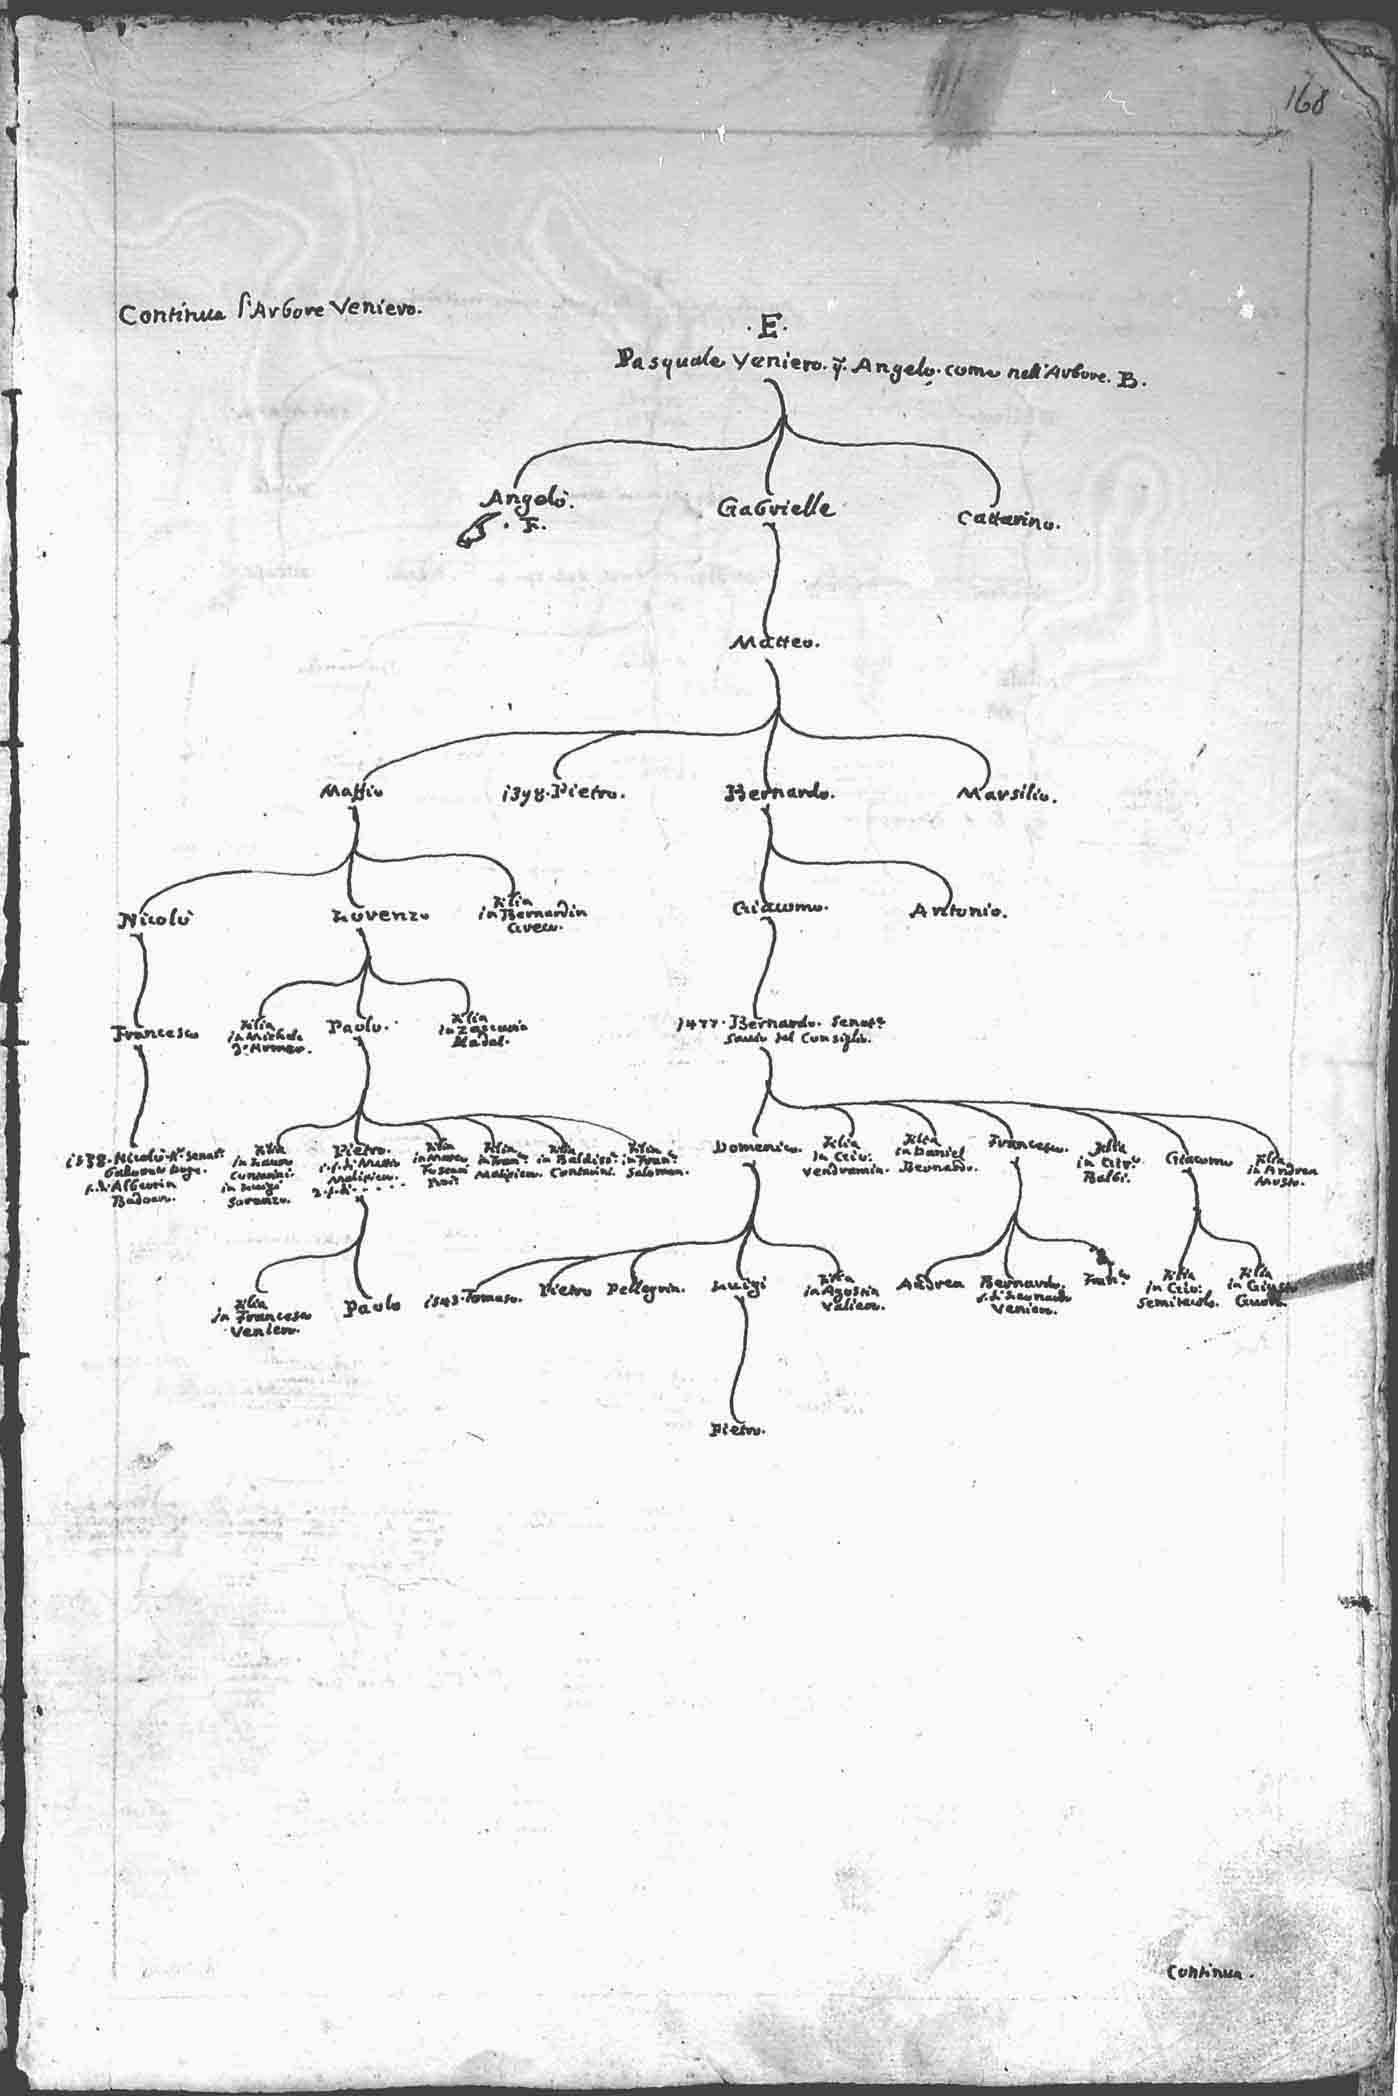 168
Continua l'Arbore Veniero.
.E.
Pasquale Veniero. q. Angelo. come nell'Arbore. B.
Angelo.
. F.
Gabrielle
Cattarino.
Matteo.
Maffio
1398. Pietro.
Bernardo.
Marsilio.
Nicolò
Lorenzo
Filia
in Bernardin
Giacomo.
Antonio.
Francesco
Filia
in Michele
Paolo.
Filia
1477. Bernardo. Senatr
Savio del Consiglio.
1538. Nicolò Kr Senatr
f. di Alberin
Badoer.
Filia
Contarini.
in Luigi
Soranzo.
Pietro.
Malipiero.
Filia
in Marco
Foscari
Filia
in Franco
Malipiero.
Filia
in Baldisr
Contarini.
Filia
in Franco
Salomon.
Domenico.
Filia
in Cciv:
Vendramin.
Filia
in Daniel
Bernardo.
Francesco.
Filia
Balbi.
Giacomo
Filia
in Andrea
Mosto.
Filia
in Francesco
Venier.
Paolo
1543. Tomaso.
Pietro
Pellegrin.
Luigi
Filia
in Agostin
Valier.
Andrea
Bernardo.
f. di Leonardo
Venier.
Franco
Filia
Semitecolo.
Filia
in Giusto
Pietro.
Continua.